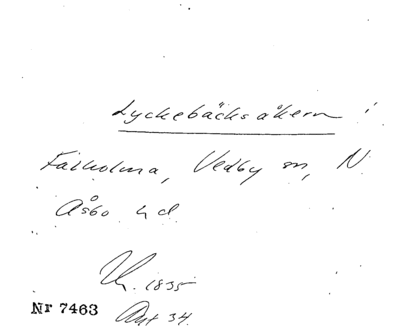 Lyckebäcksåkern i
Färholma, Vedby sn, N.
Åsbo hd.
Uh. 1835
Nr 7463
Akt 34.